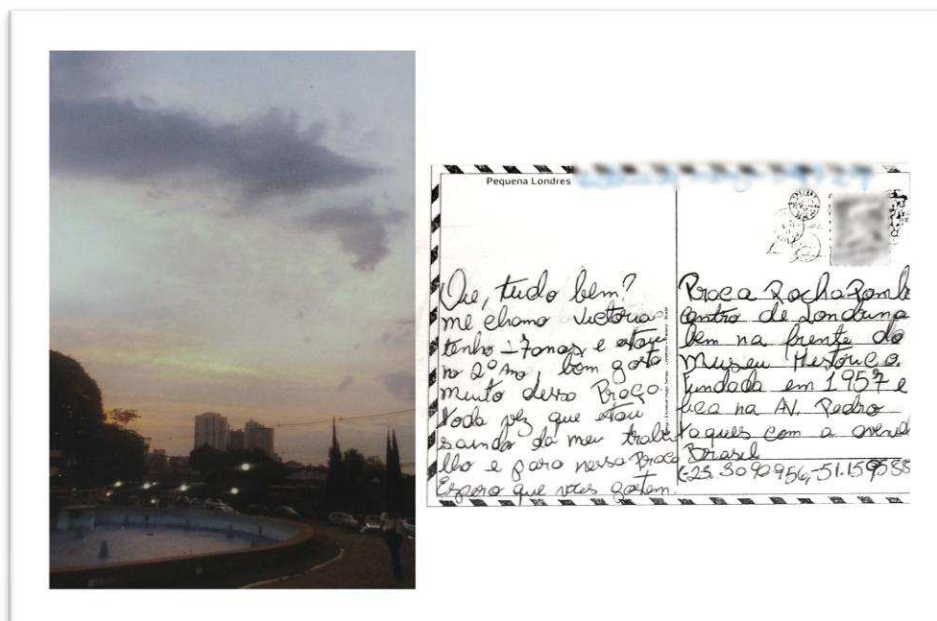 Pequena Londres
Oie, tudo bem?
me chamo Victoria
tenho 17 anos, e estou
no 2º no, bom gosto
muito dessa Praça
toda vez que estou
saindo do meu traba
lho e paro nessa Praça
Espero que voces gostem.
Praca Rocha Pomb
Centro de Londrina
bem na frente do
Museu Historico.
Fundada em 1957 e
fica na AV. Pedro
taques com a avenid
Brasil
(-23.3090956,-51.159